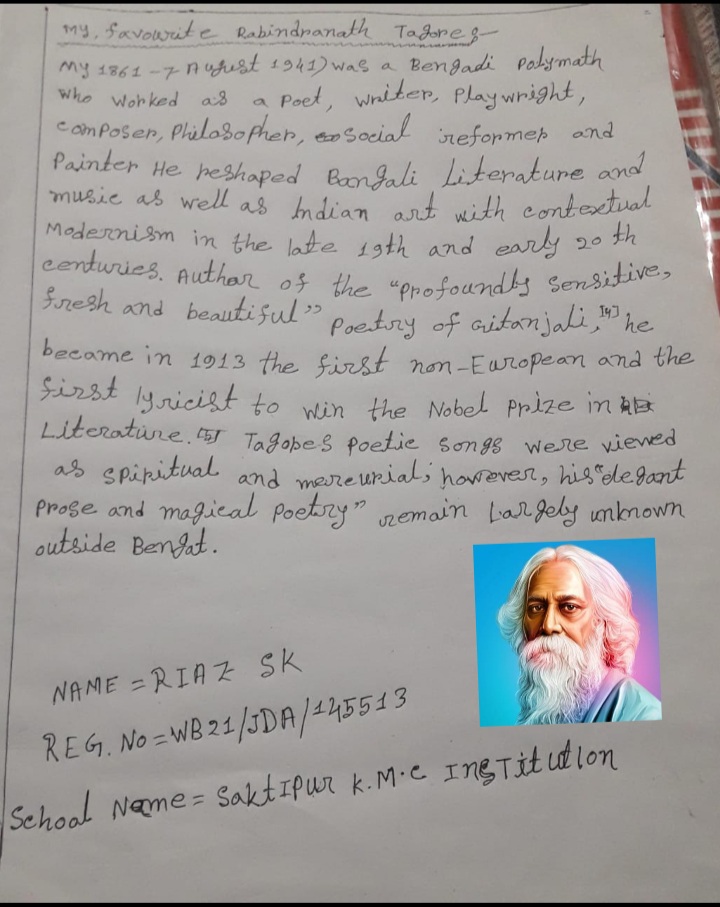 My, favourite Rabindranath Tagores
My 1861 - 7 August 1941) was a Bengadi Polymath
who worked as a Poet, writer, Playwright,
composer, Philosopher, social reformer and
Painter He reshaped Bangali Literature and
music as well as Indian art with contextual
Modernism in the late 19th and early 20 th
centuries. Author of the "profoundly sensitive,
fresh and beautiful" Poetry of Gitanjali, [4] he
became in 1913 the first non-European and the
first lyricist to win the Nobel Prize in
Literature. [5] Tagores Poetic songs were viewed
as spiritual and mercurial; however, his "elegant
Prose and magical Poetry" remain Largely unknown
outside Bengat.
NAME = RIAZ SK
REG. No = WB21/JDA/145513
School Name = Saktipur K.M.C Institution